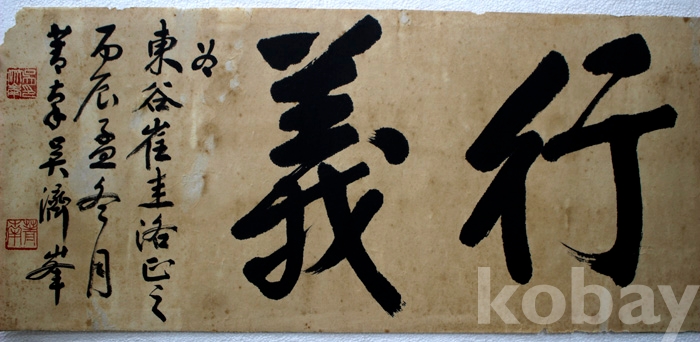 行義
為
東谷崔圭洛正之
丙辰孟冬月
菁南吳濟峯
kobay